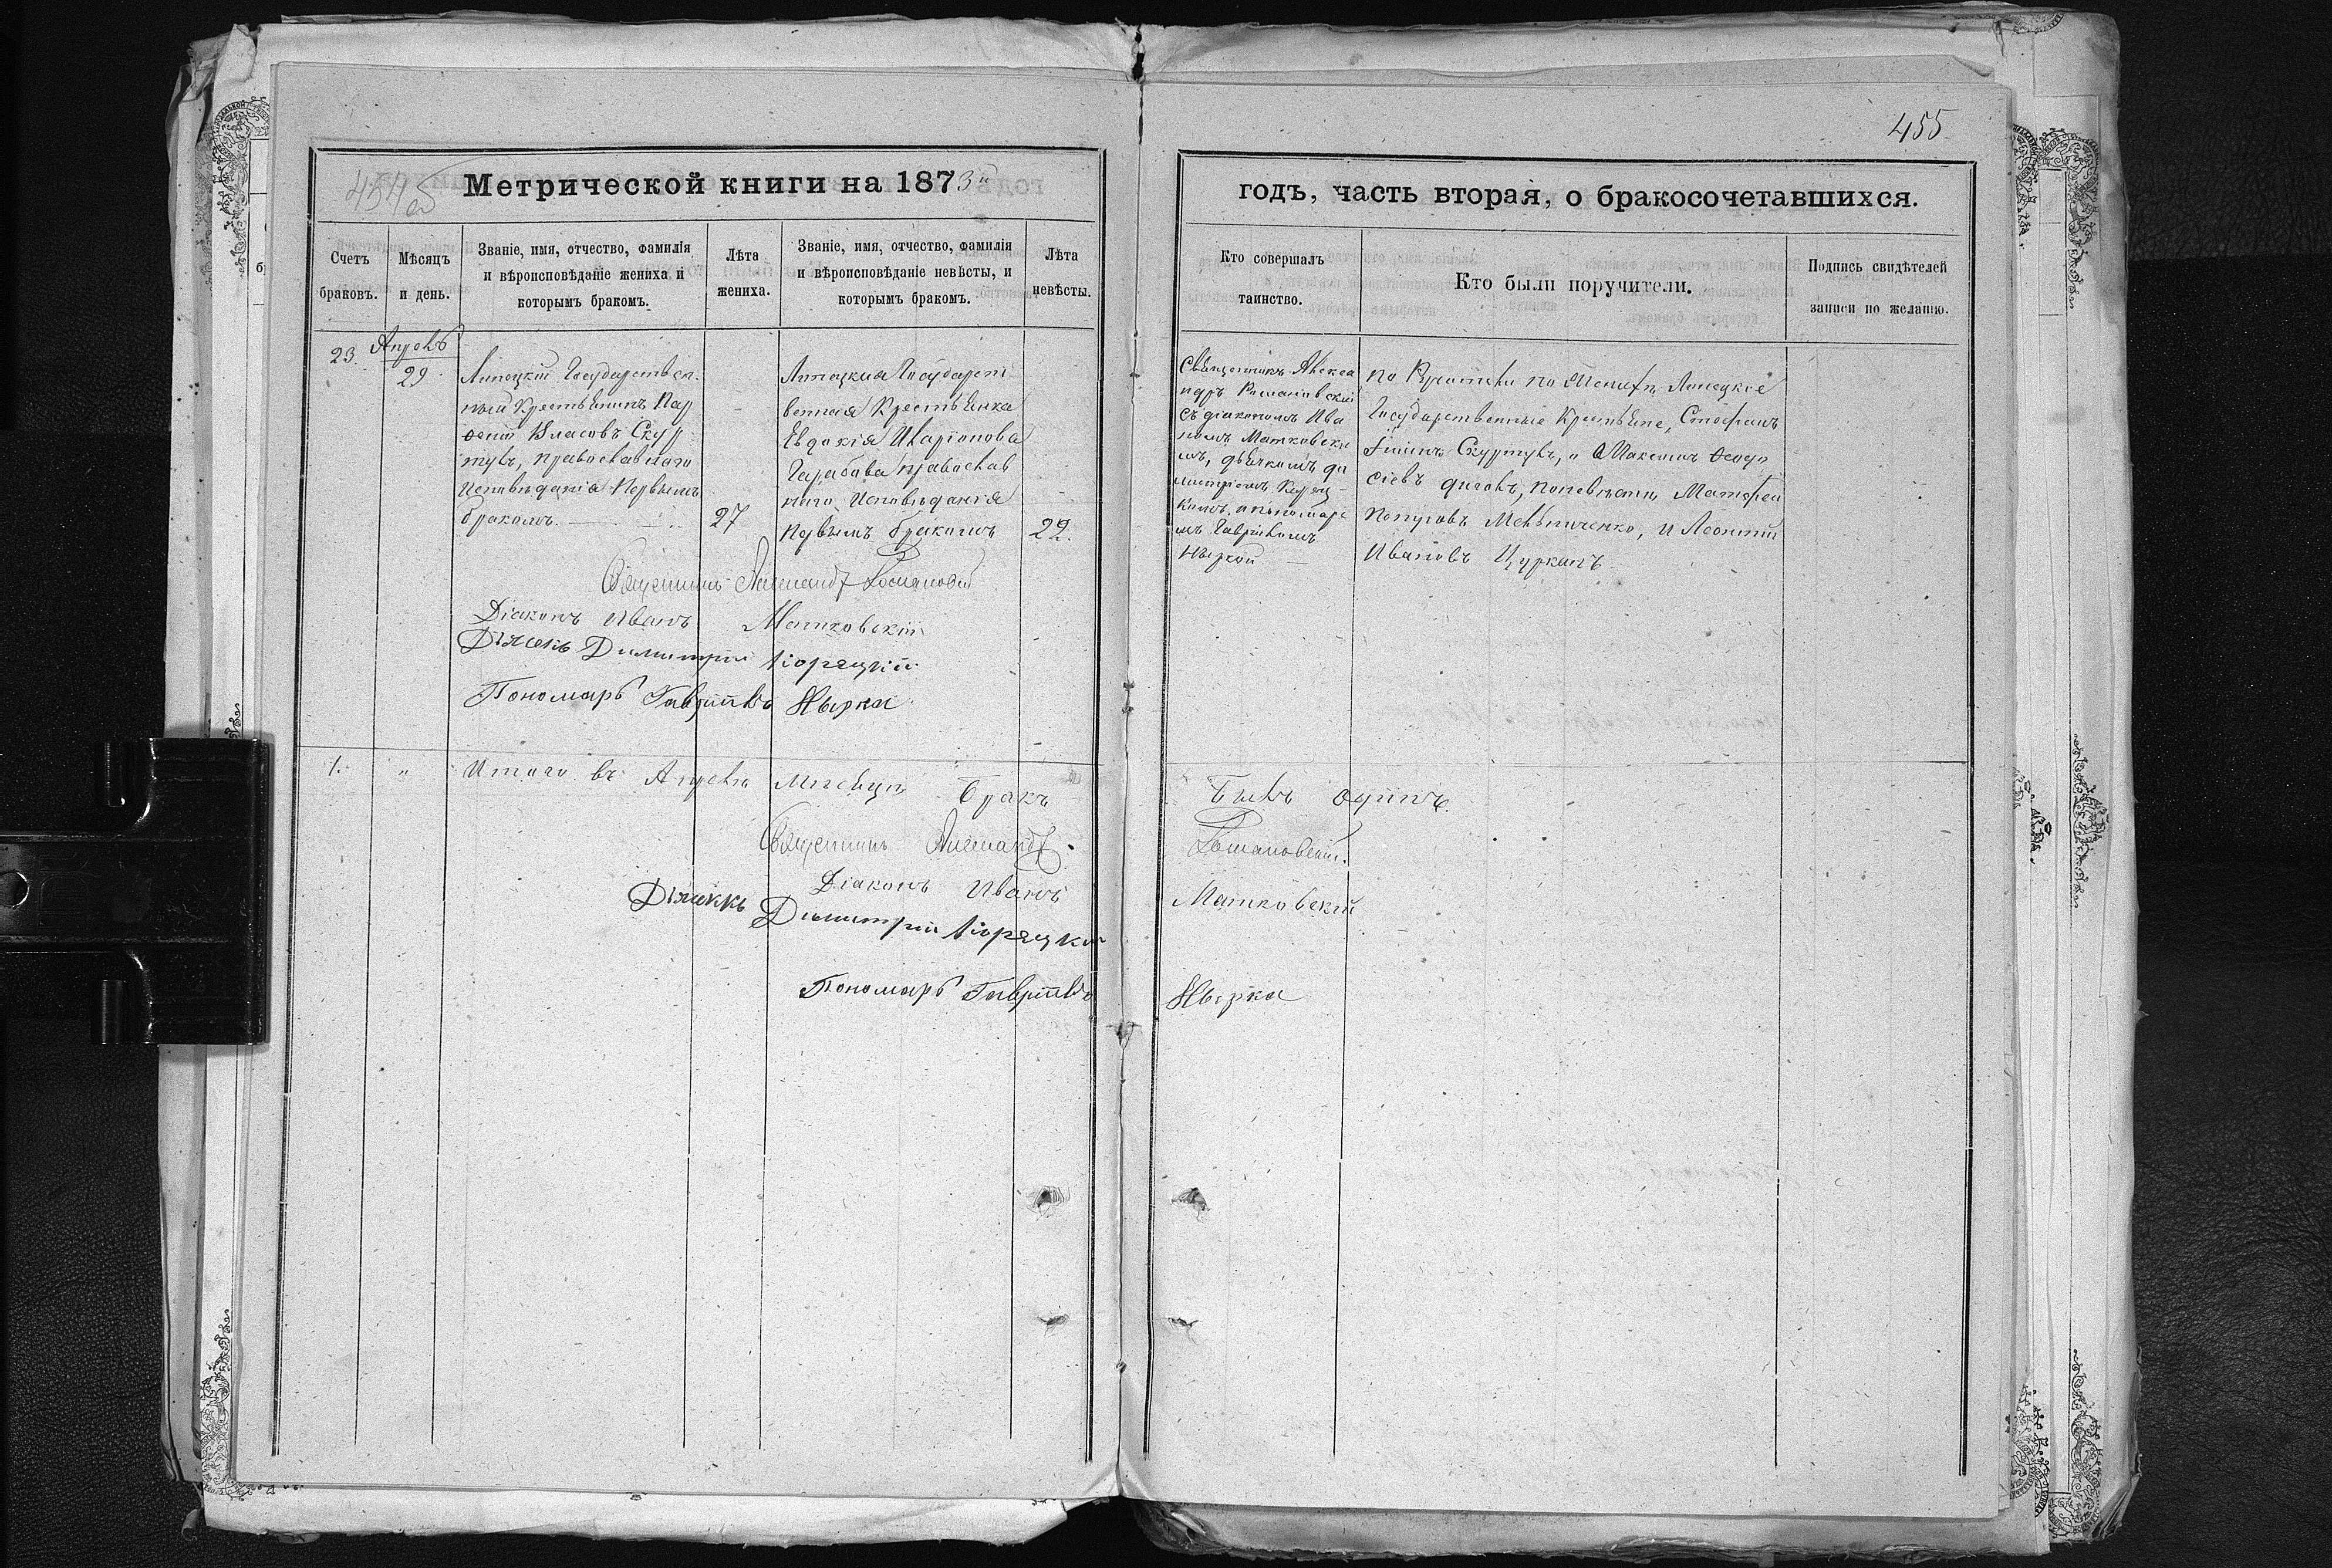 455
Метрической книги на 1873й
годъ, часть вторая, о бракосочетавшихся.
Счетъ браковъ.
Мѣсяцъ и день.
Званіе, имя, отчество, фамилія и вѣроисповѣданіе жениха и которымъ бракомъ.
Лѣта жениха.
Званіе, имя, отчество, фамилія и вѣроисповѣданіе невѣсты, и которымъ бракомъ.
Лѣта невѣсты.
Кто совершалъ таинство.
Кто были поручители.
Подпись свидѣтелей записи по желанію.
23.
Апрель
29
Липецкій Государствен-
ный Крестьянинъ Пар
ѳеній Власовъ Скур
тулъ, православнаго
Исповѣданія Первымъ
бракомъ.
27
Липецкая Государст
венная Крестьянка
Евдокія Иларіонова
православ
наго Исповѣданія
Первымъ бракомъ
22.
Священникъ Алекса
ндръ Романовскій
съ діакономъ Ива
номъ Матковски
мъ, дьячкомъ Ди
митріемъ Корец
кимъ, и пономаре
мъ Гавріиломъ
Ныркой
По Женихѣ Липецкіе
Государственные Крестьяне, Стефанъ
Скуртулъ, и Максимъ Ѳеодо
сіевъ по невѣсти, Матфей
Мельниченко, и Леонтій
Ивановъ Цурканъ
Священникъ Александръ Романовскій
Діаконъ Иванъ Матковскій
Дьячекъ Димитрій Корецкій
Пономарь Гавріилъ Нырка
1. " Итого въ Апрелѣ Месяцѣ Бракъ
Былъ одинъ.
Священникъ Александръ
Романовскій.
Діаконъ Иванъ
Матковскій
Дьячекъ Димитрій Корецкій
Пономарь Гавріилъ
Нырка